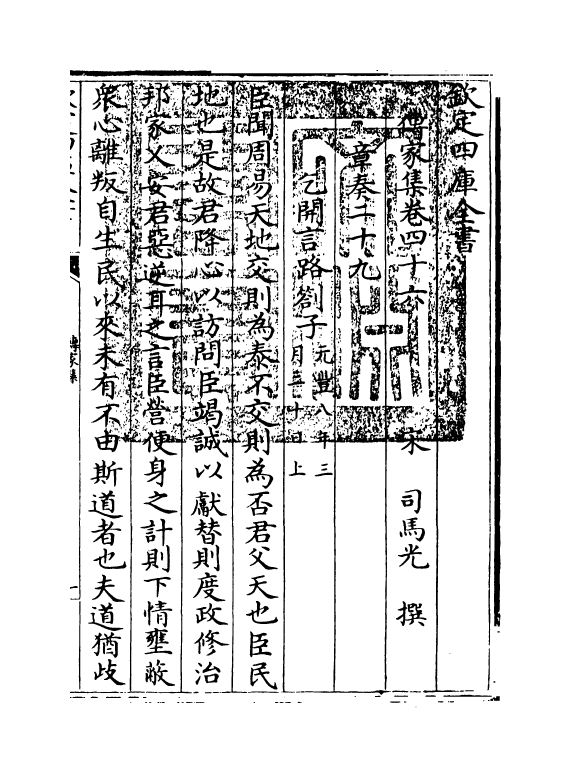 欽定四庫全書
傳家集卷四十六　宋　司馬光　撰
章奏二十九
乞開言路劄子元豐八年三月三十日上
臣聞周易天地交則為泰不交則為否君父天也臣民
地也是故君降心以訪問臣竭誠以獻替則庶政修治
邦家乂安君惡逆耳之言臣營便身之計則下情壅蔽
衆心離叛自生民以來未有不由斯道者也夫道猶歧
傳家集